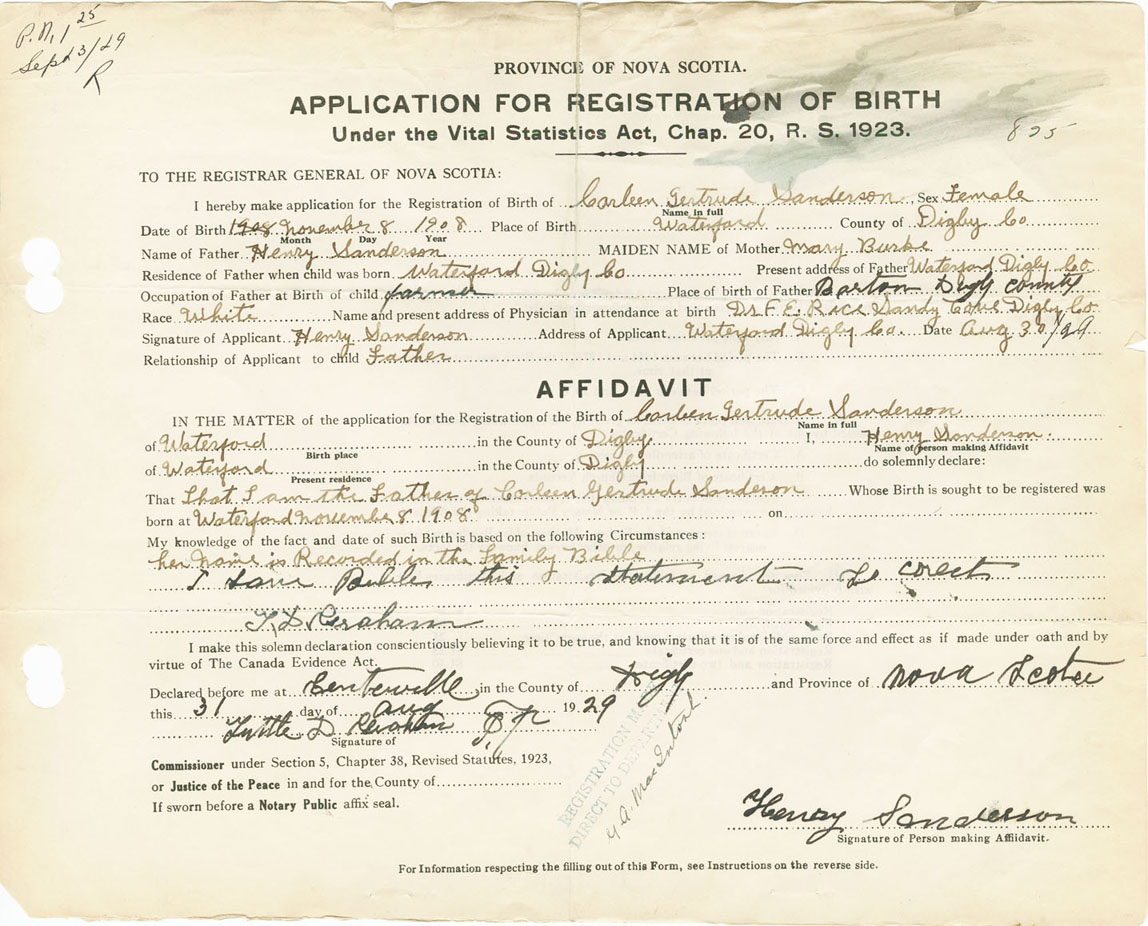 P.N. 1 25
Sept 3/29
R
PROVINCE OF NOVA SCOTIA.
APPLICATION FOR REGISTRATION OF BIRTH
Under the Vital Statistics Act, Chap. 20, R. S. 1923.
825
TO THE REGISTRAR GENERAL OF NOVA SCOTIA:
I hereby make application for the Registration of Birth of Carleen Gertrude Sanderson Sex Female
Name in full
Date of Birth 1908 November 8 1908 Place of Birth Waterford County of Digby Co
Month Day Year
Name of Father Henry Sanderson MAIDEN NAME of Mother Mary Burke
Residence of Father when child was born Waterford Digby Co Present address of Father Waterford Digby Co.
Occupation of Father at Birth of child farmer Place of birth of Father Barton Digby County
Race White Name and present address of Physician in attendance at birth Dr F. E. Rice Sandy Cove Digby Co.
Signature of Applicant Henry Sanderson Address of Applicant Waterford Digby Co. Date Aug 30/29
Relationship of Applicant to child Father
AFFIDAVIT
IN THE MATTER of the application for the Registration of the Birth of Carleen Gertrude Sanderson
Name in full
of Waterford in the County of Digby I, Henry Sanderson
Birth place Name of person making Affidavit
of Waterford in the County of Digby do solemnly declare:
Present residence
That That I am the Father of Carleen Gertrude Sanderson Whose Birth is sought to be registered was
born at Waterford November 8 1908 on
My knowledge of the fact and date of such Birth is based on the following Circumstances:
her Name is Recorded in the Family Bible
I Bible this statement corect
I make this solemn declaration conscientiously believing it to be true, and knowing that it is of the same force and effect as if made under oath and by
virtue of The Canada Evidence Act.
Declared before me at Centerville in the County of Digby and Province of Nova Scotia
this 31 day of aug 1929
Signature of
Commissioner under Section 5, Chapter 38, Revised Statutes, 1923,
or Justice of the Peace in and for the County of
If sworn before a Notary Public affix seal.
REGISTRATION
DIRECT TO
MacIntosh.
Henry Sanderson
Signature of Person making Affidavit.
For Information respecting the filling out of this Form, see Instructions on the reverse side.